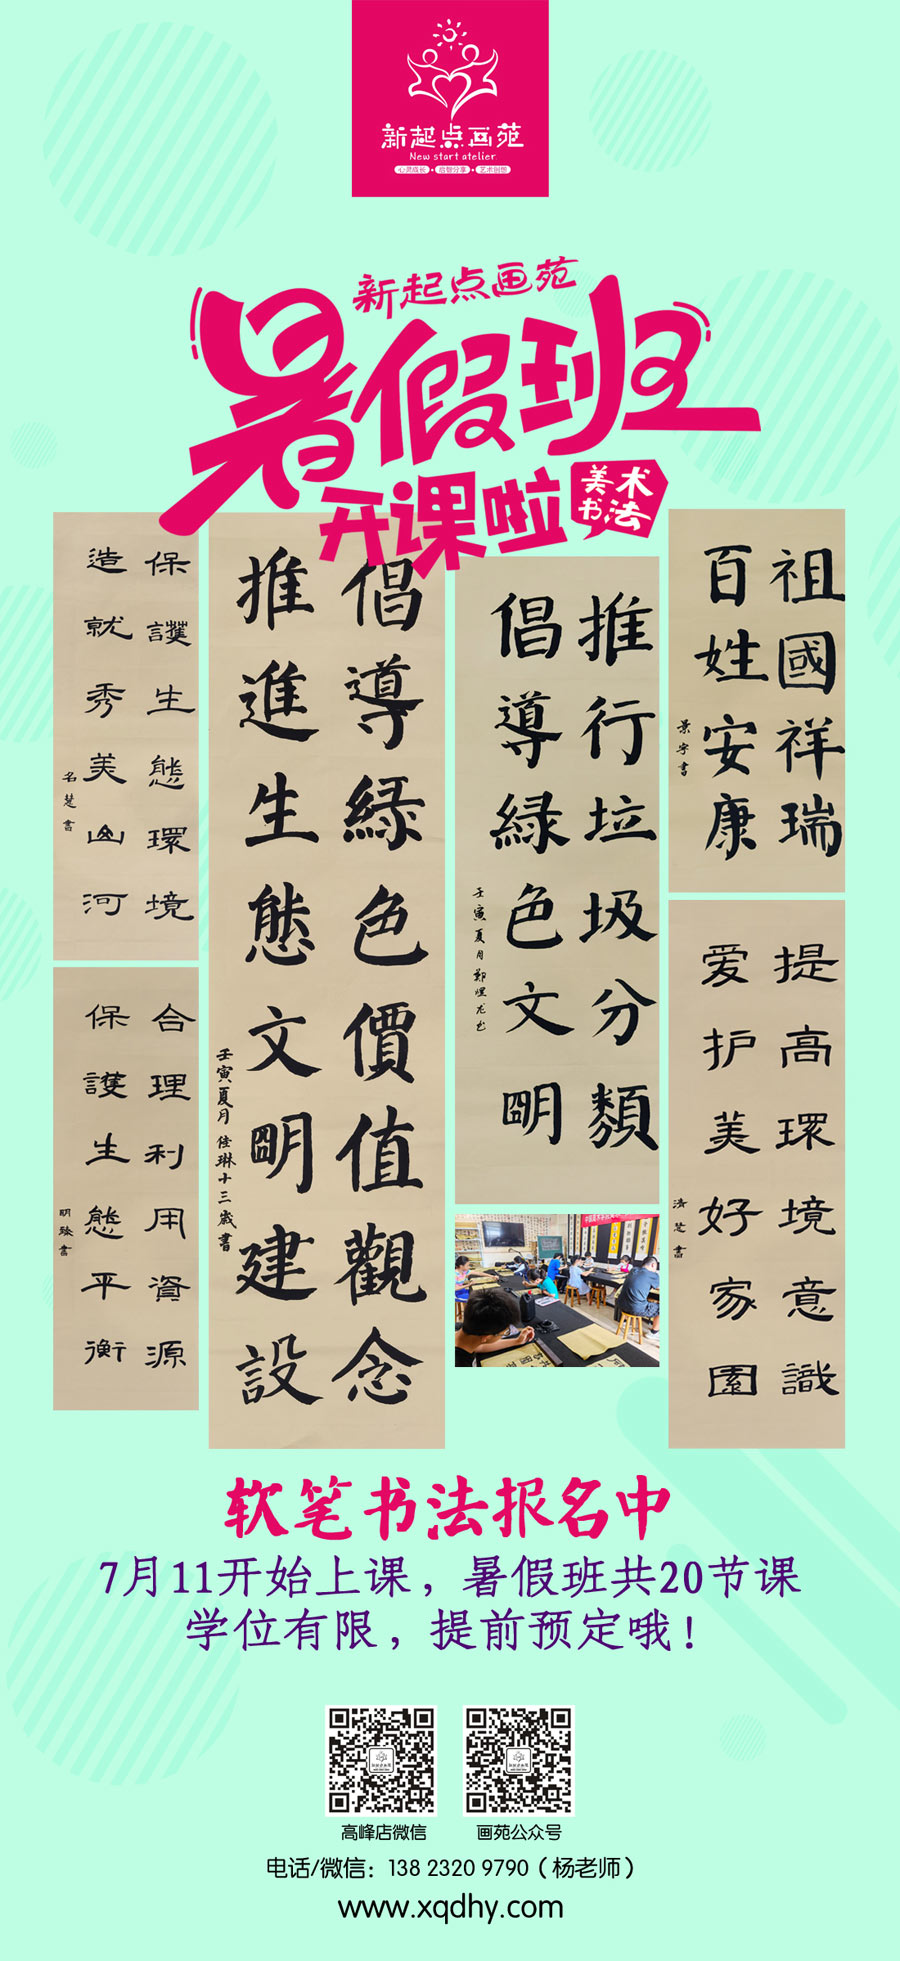 新起点画苑
New start atelier
心灵成长·启智分享·艺术创想
新起点画苑
暑假班
开课啦
美术
书法
保護生態環境
造就秀美山河
名楚書
倡導緑色價值觀念
推進生態文明建設
壬寅夏月佳琳十三歲書
推行垃圾分類
倡導緑色文明
壬寅夏月鄭煜龙书
祖國祥瑞
百姓安康
景宇書
合理利用資源
保護生態平衡
明臻書
提高環境意識
爱护美好家園
清楚書
软笔书法报名中
7月11开始上课，暑假班共20节课
学位有限，提前预定哦！
高峰店微信
画苑公众号
电话/微信：138 2320 9790（杨老师）
www.xqdhy.com